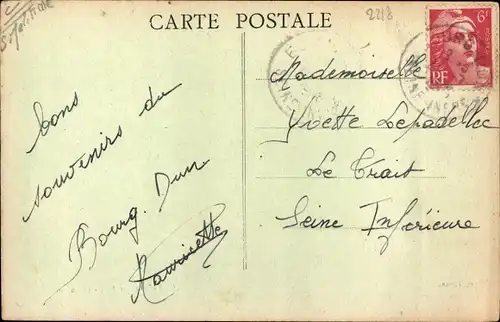 CARTE POSTALE
2213
6F
RF
bons
souvenirs du
Bourg. Dun
Mauricette
Mademoiselle
Yvette Lepadellec
Le Trait
Seine Inférieure